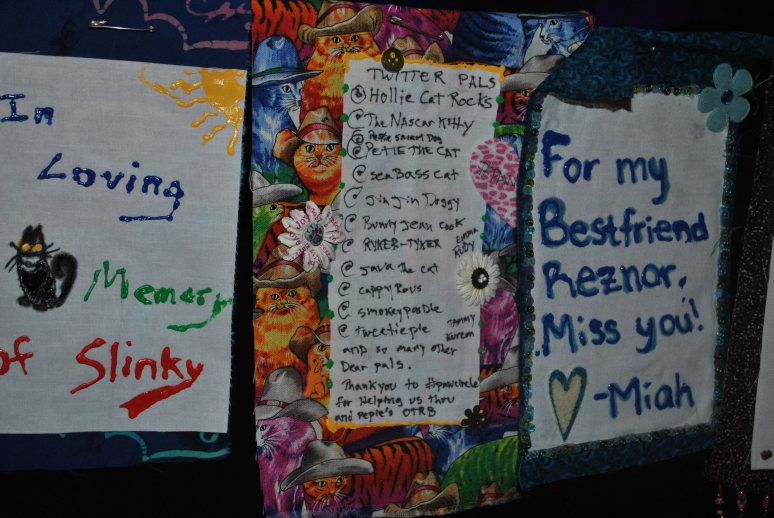 In
Loving
Memory
of Slinky
TWITTER PALS
@ Hollie Cat Rocks
@ The Nascar Kitty
@ Petie Smart Dog
@ PETIE THE CAT
@ sea Bass cat
@ Jin Jin Doggy
@ Bunny Jean Cook
@ RYKER-TYKER
Emma
Kitty
@ Java the cat
@ cappy Rous
@ smokey poodle
@ tweetie pie
TAMMY
Kurem
and so many other
Dear pals.
Thankyou to #pawcircle
for Helping us thru
and pepie's OTRB
For my
Bestfriend
Reznor.
Miss you!
-Miah